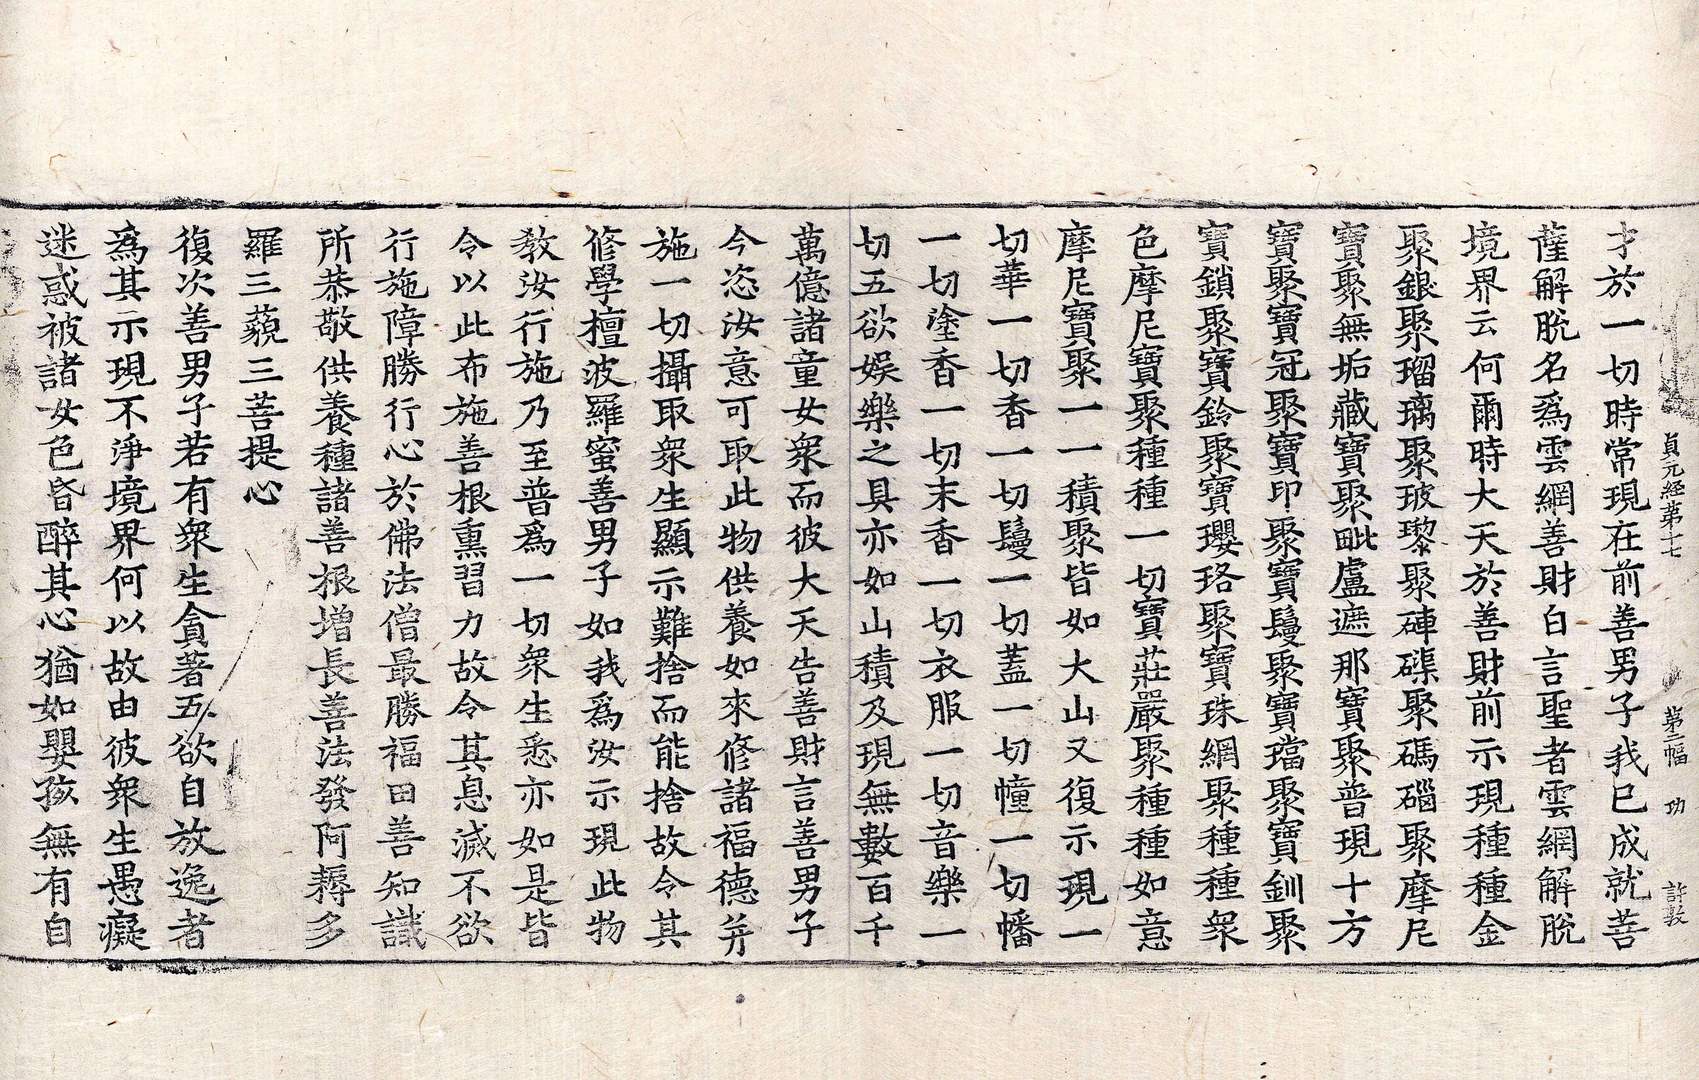 貞元経第十七 第二幅 功 許敦
才於一切時常現在前善男子我已成就菩
薩解脫名爲雲網善財白言聖者雲網解脫
境界云何爾時大天於善財前示現種種金
聚銀聚瑠璃聚玻瓈聚硨磲聚碼碯聚摩尼
寶聚無垢藏寶聚毗盧遮那寶聚普現十方
寶聚寶冠聚寶印聚寶鬘聚寶璫聚寶釧聚
寶鎖聚寶鈴聚寶瓔珞聚寶珠網聚種種衆
色摩尼寶聚種種一切寶莊嚴聚種種如意
摩尼寶聚一一積聚皆如大山又復示現一
切華一切香一切鬘一切蓋一切幢一切幡
一切塗香一切末香一切衣服一切音樂一
切五欲娛樂之具亦如山積及現無數百千
萬億諸童女衆而彼大天告善財言善男子
今恣汝意可取此物供養如來修諸福德并
施一切攝取衆生顯示難捨而能捨故令其
修學檀波羅蜜善男子如我爲汝示現此物
敎汝行施乃至普爲一切衆生悉亦如是皆
令以此布施善根熏習力故令其息滅不欲
行施障勝行心於佛法僧最勝福田善知識
所恭敬供養種諸善根增長善法發阿耨多
羅三藐三菩提心
復次善男子若有衆生貪著五欲自放逸者
爲其示現不淨境界何以故由彼衆生愚癡
迷惑被諸女色昏醉其心猶如嬰孩無有自